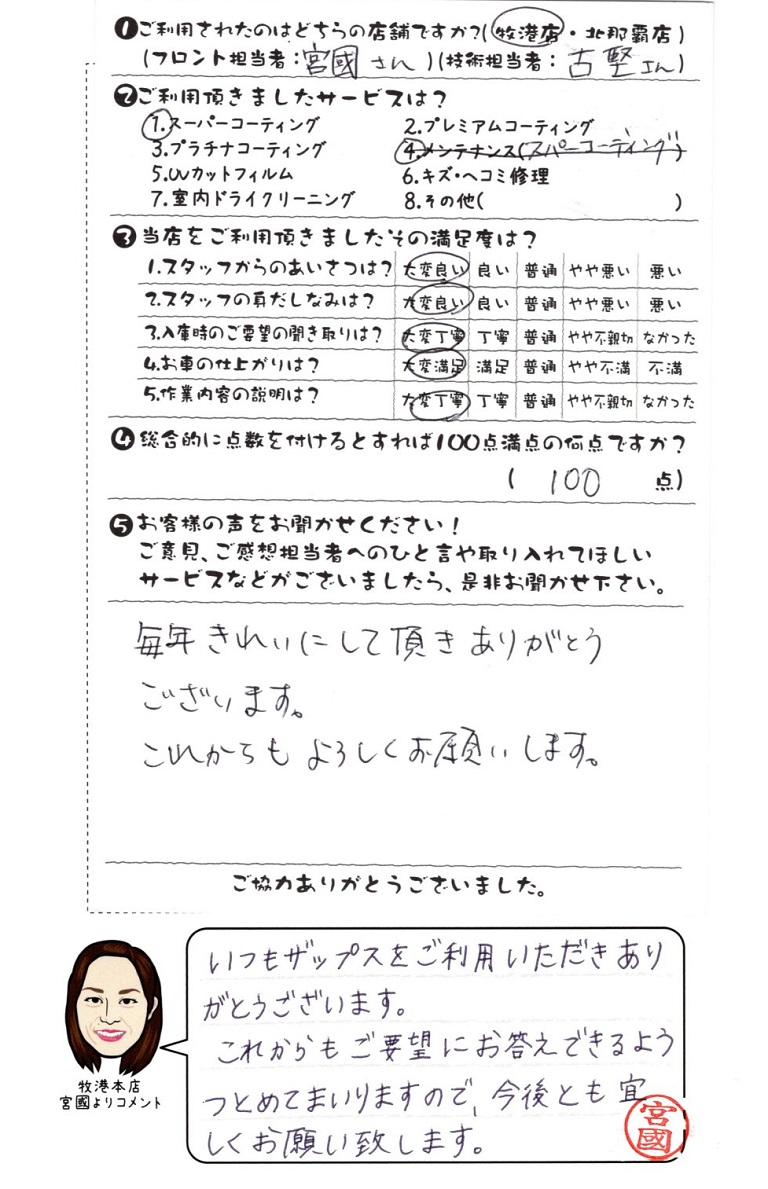 ❶ご利用されたのはどちらの店舗ですか?(牧港店・北那覇店)
(フロント担当者：宮國さん)(技術担当者：古堅さん)
❷ご利用頂きましたサービスは?
1.スーパーコーティング 2.プレミアムコーティング
3.プラチナコーティング 4.メンテナンス(スパーコーディング)
5.UVカットフィルム 6.キズ・ヘコミ修理
7.室内ドライクリーニング 8.その他( )
❸当店をご利用頂きましたその満足度は?
1.スタッフからのあいさつは? 大変良い 良い 普通 やや悪い 悪い
2.スタッフの身だしなみは? 大変良い 良い 普通 やや悪い 悪い
3.入庫時のご要望の聞き取りは? 大変丁寧 丁寧 普通 やや不親切 なかった
4.お車の仕上がりは? 大変満足 満足 普通 やや不満 不満
5.作業内容の説明は? 大変丁寧 丁寧 普通 やや不親切 なかった
❹総合的に点数を付けるとすれば100点満点の何点ですか?
( 100 点)
❺お客様の声をお聞かせください!
ご意見、ご感想担当者へのひと言や取り入れてほしい
サービスなどがございましたら、是非お聞かせ下さい。
毎年きれいにして頂きありがとう
ございます。
これからもよろしくお願いします。
ご協力ありがとうございました。
いつもザップスをご利用いただきあり
がとうございます。
これからもご要望にお答えできるよう
つとめてまいりますので、今後とも宜
しくお願い致します。
宮國
牧港本店
宮國よりコメント